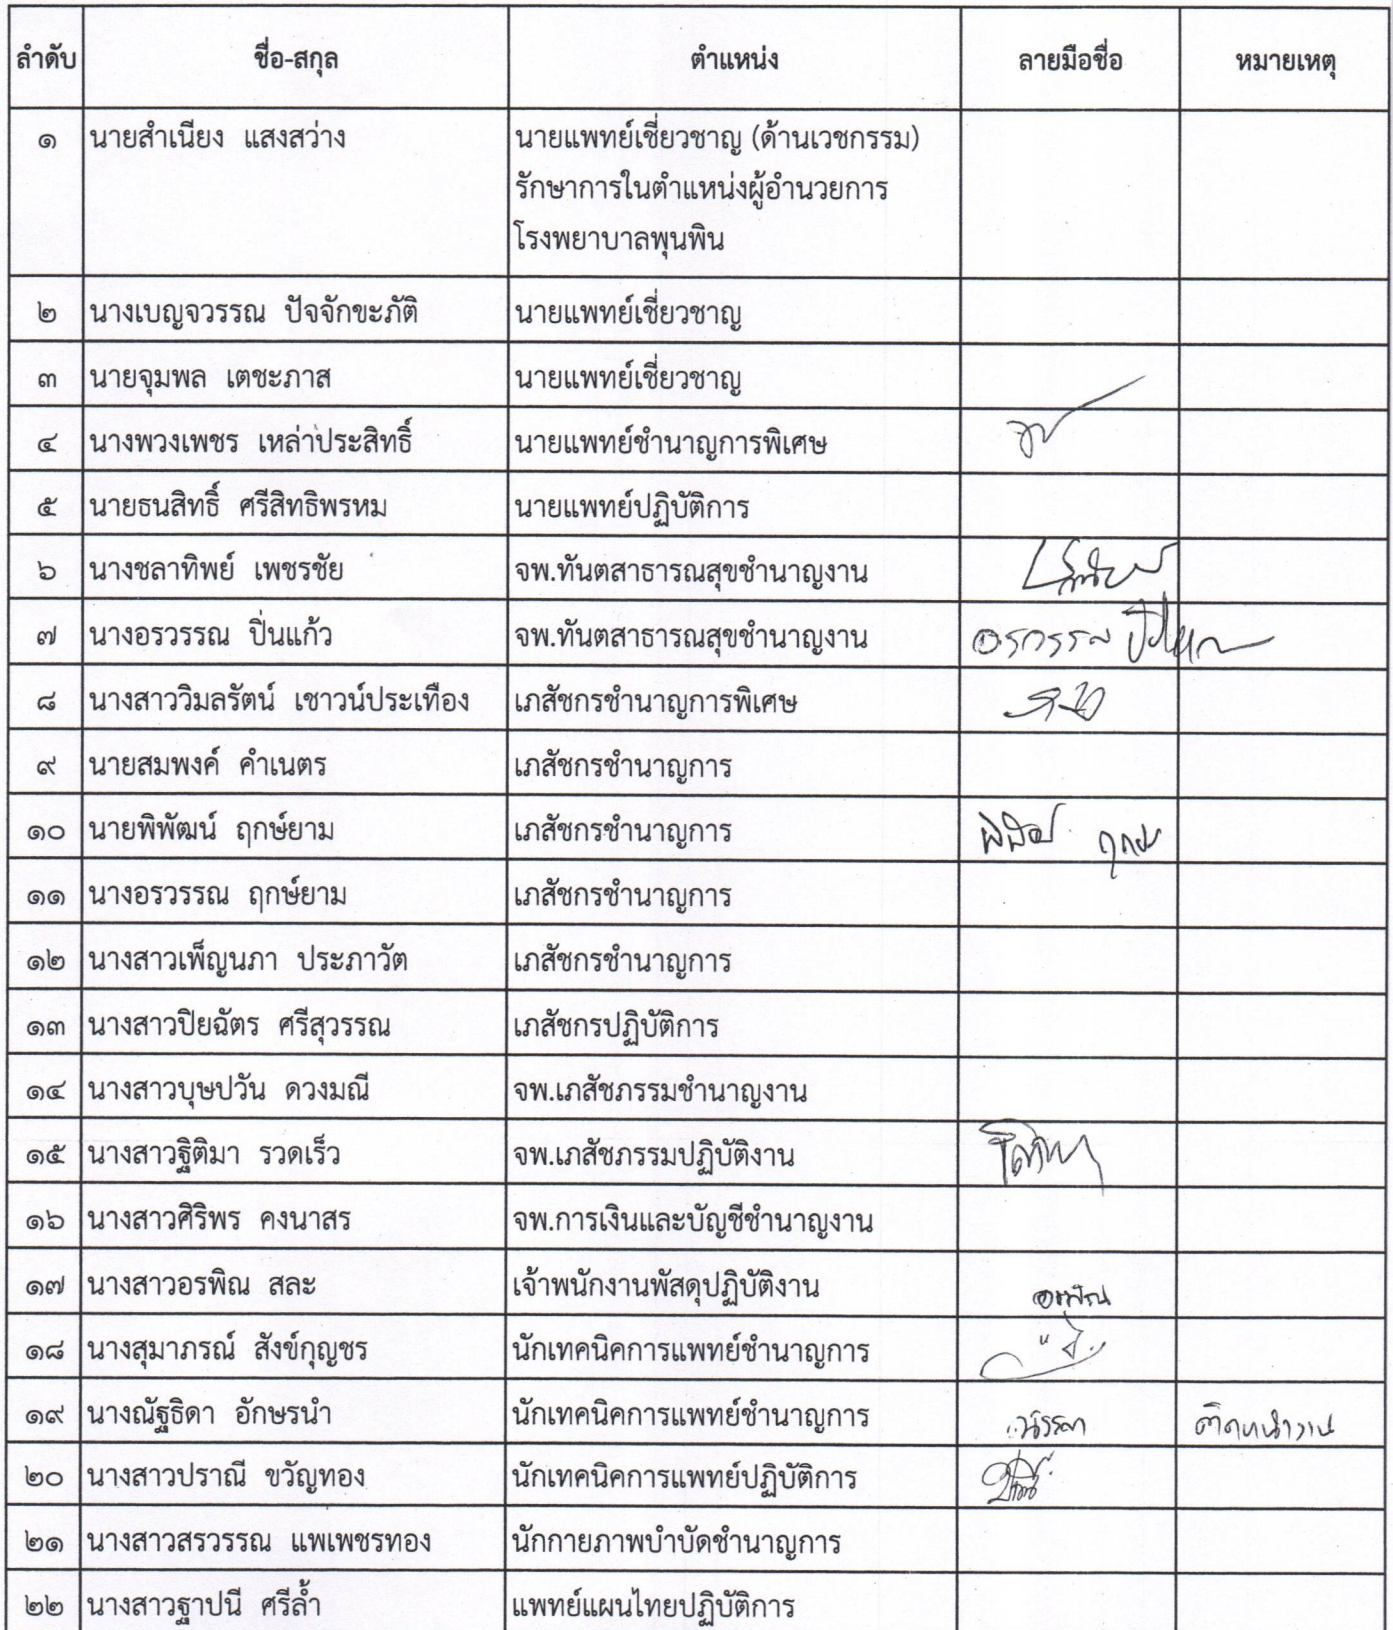 ลำดับ ชื่อ-สกุล ตำแหน่ง ลายมือชื่อ หมายเหตุ
๑ นายสำเนียง แสงสว่าง นายแพทย์เชี่ยวชาญ (ด้านเวชกรรม)
รักษาการในตำแหน่งผู้อำนวยการ
โรงพยาบาลพุนพิน
๒ นางเบญจวรรณ ปัจจักขะภัติ นายแพทย์เชี่ยวชาญ
๓ นายจุมพล เตชะภาส นายแพทย์เชี่ยวชาญ
๔ นางพวงเพชร เหล่าประสิทธิ์ นายแพทย์ชำนาญการพิเศษ
๕ นายธนสิทธิ์ ศรีสิทธิพรหม นายแพทย์ปฏิบัติการ
๖ นางชลาทิพย์ เพชรชัย จพ.ทันตสาธารณสุขชำนาญงาน
๗ นางอรวรรณ ปิ่นแก้ว จพ.ทันตสาธารณสุขชำนาญงาน อรวรรณ
๘ นางสาววิมลรัตน์ เชาวน์ประเทือง เภสัชกรชำนาญการพิเศษ
๙ นายสมพงค์ คำเนตร เภสัชกรชำนาญการ
๑๐ นายพิพัฒน์ ฤกษ์ยาม เภสัชกรชำนาญการ
๑๑ นางอรวรรณ ฤกษ์ยาม เภสัชกรชำนาญการ
๑๒ นางสาวเพ็ญนภา ประภาวัต เภสัชกรชำนาญการ
๑๓ นางสาวปิยฉัตร ศรีสุวรรณ เภสัชกรปฏิบัติการ
๑๔ นางสาวบุษปวัน ดวงมณี จพ.เภสัชกรรมชำนาญงาน
๑๕ นางสาวฐิติมา รวดเร็ว จพ.เภสัชกรรมปฏิบัติงาน
๑๖ นางสาวศิริพร คงนาสร จพ.การเงินและบัญชีชำนาญงาน
๑๗ นางสาวอรพิณ สละ เจ้าพนักงานพัสดุปฏิบัติงาน อรพิณ
๑๘ นางสุมาภรณ์ สังข์กุญชร นักเทคนิคการแพทย์ชำนาญการ
๑๙ นางณัฐธิดา อักษรนำ นักเทคนิคการแพทย์ชำนาญการ
๒๐ นางสาวปราณี ขวัญทอง นักเทคนิคการแพทย์ปฏิบัติการ
๒๑ นางสาวสรวรรณ แพเพชรทอง นักกายภาพบำบัดชำนาญการ
๒๒ นางสาวฐาปนี ศรีล้ำ แพทย์แผนไทยปฏิบัติการ